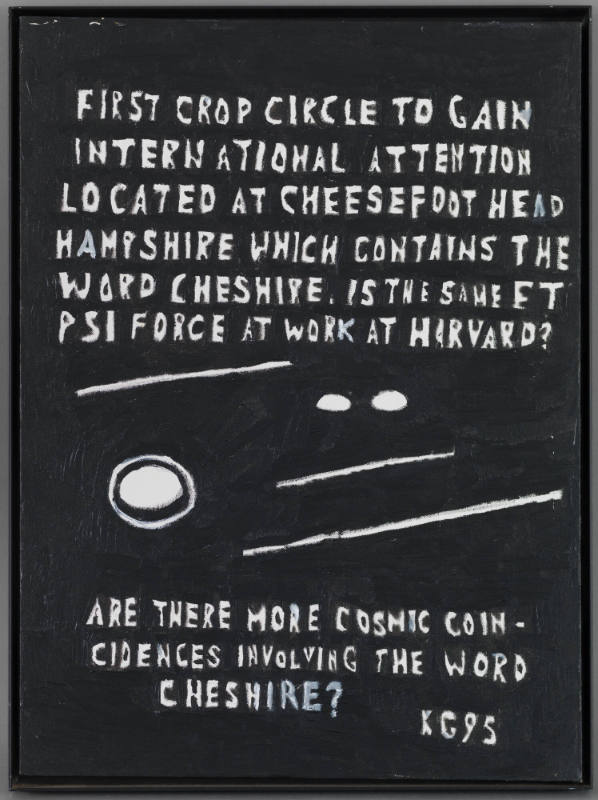 FIRST CROP CIRCLE TO GAIN
INTERNATIONAL ATTENTION
LOCATED AT CHEESEFOOT HEAD
HAMPSHIRE WHICH CONTAINS THE
WORD CHESHIRE. IS THE SAME ET
PSI FORCE AT WORK AT HARVARD?
ARE THERE MORE COSMIC COIN-
CIDENCES INVOLVING THE WORD
CHESHIRE?
KG95